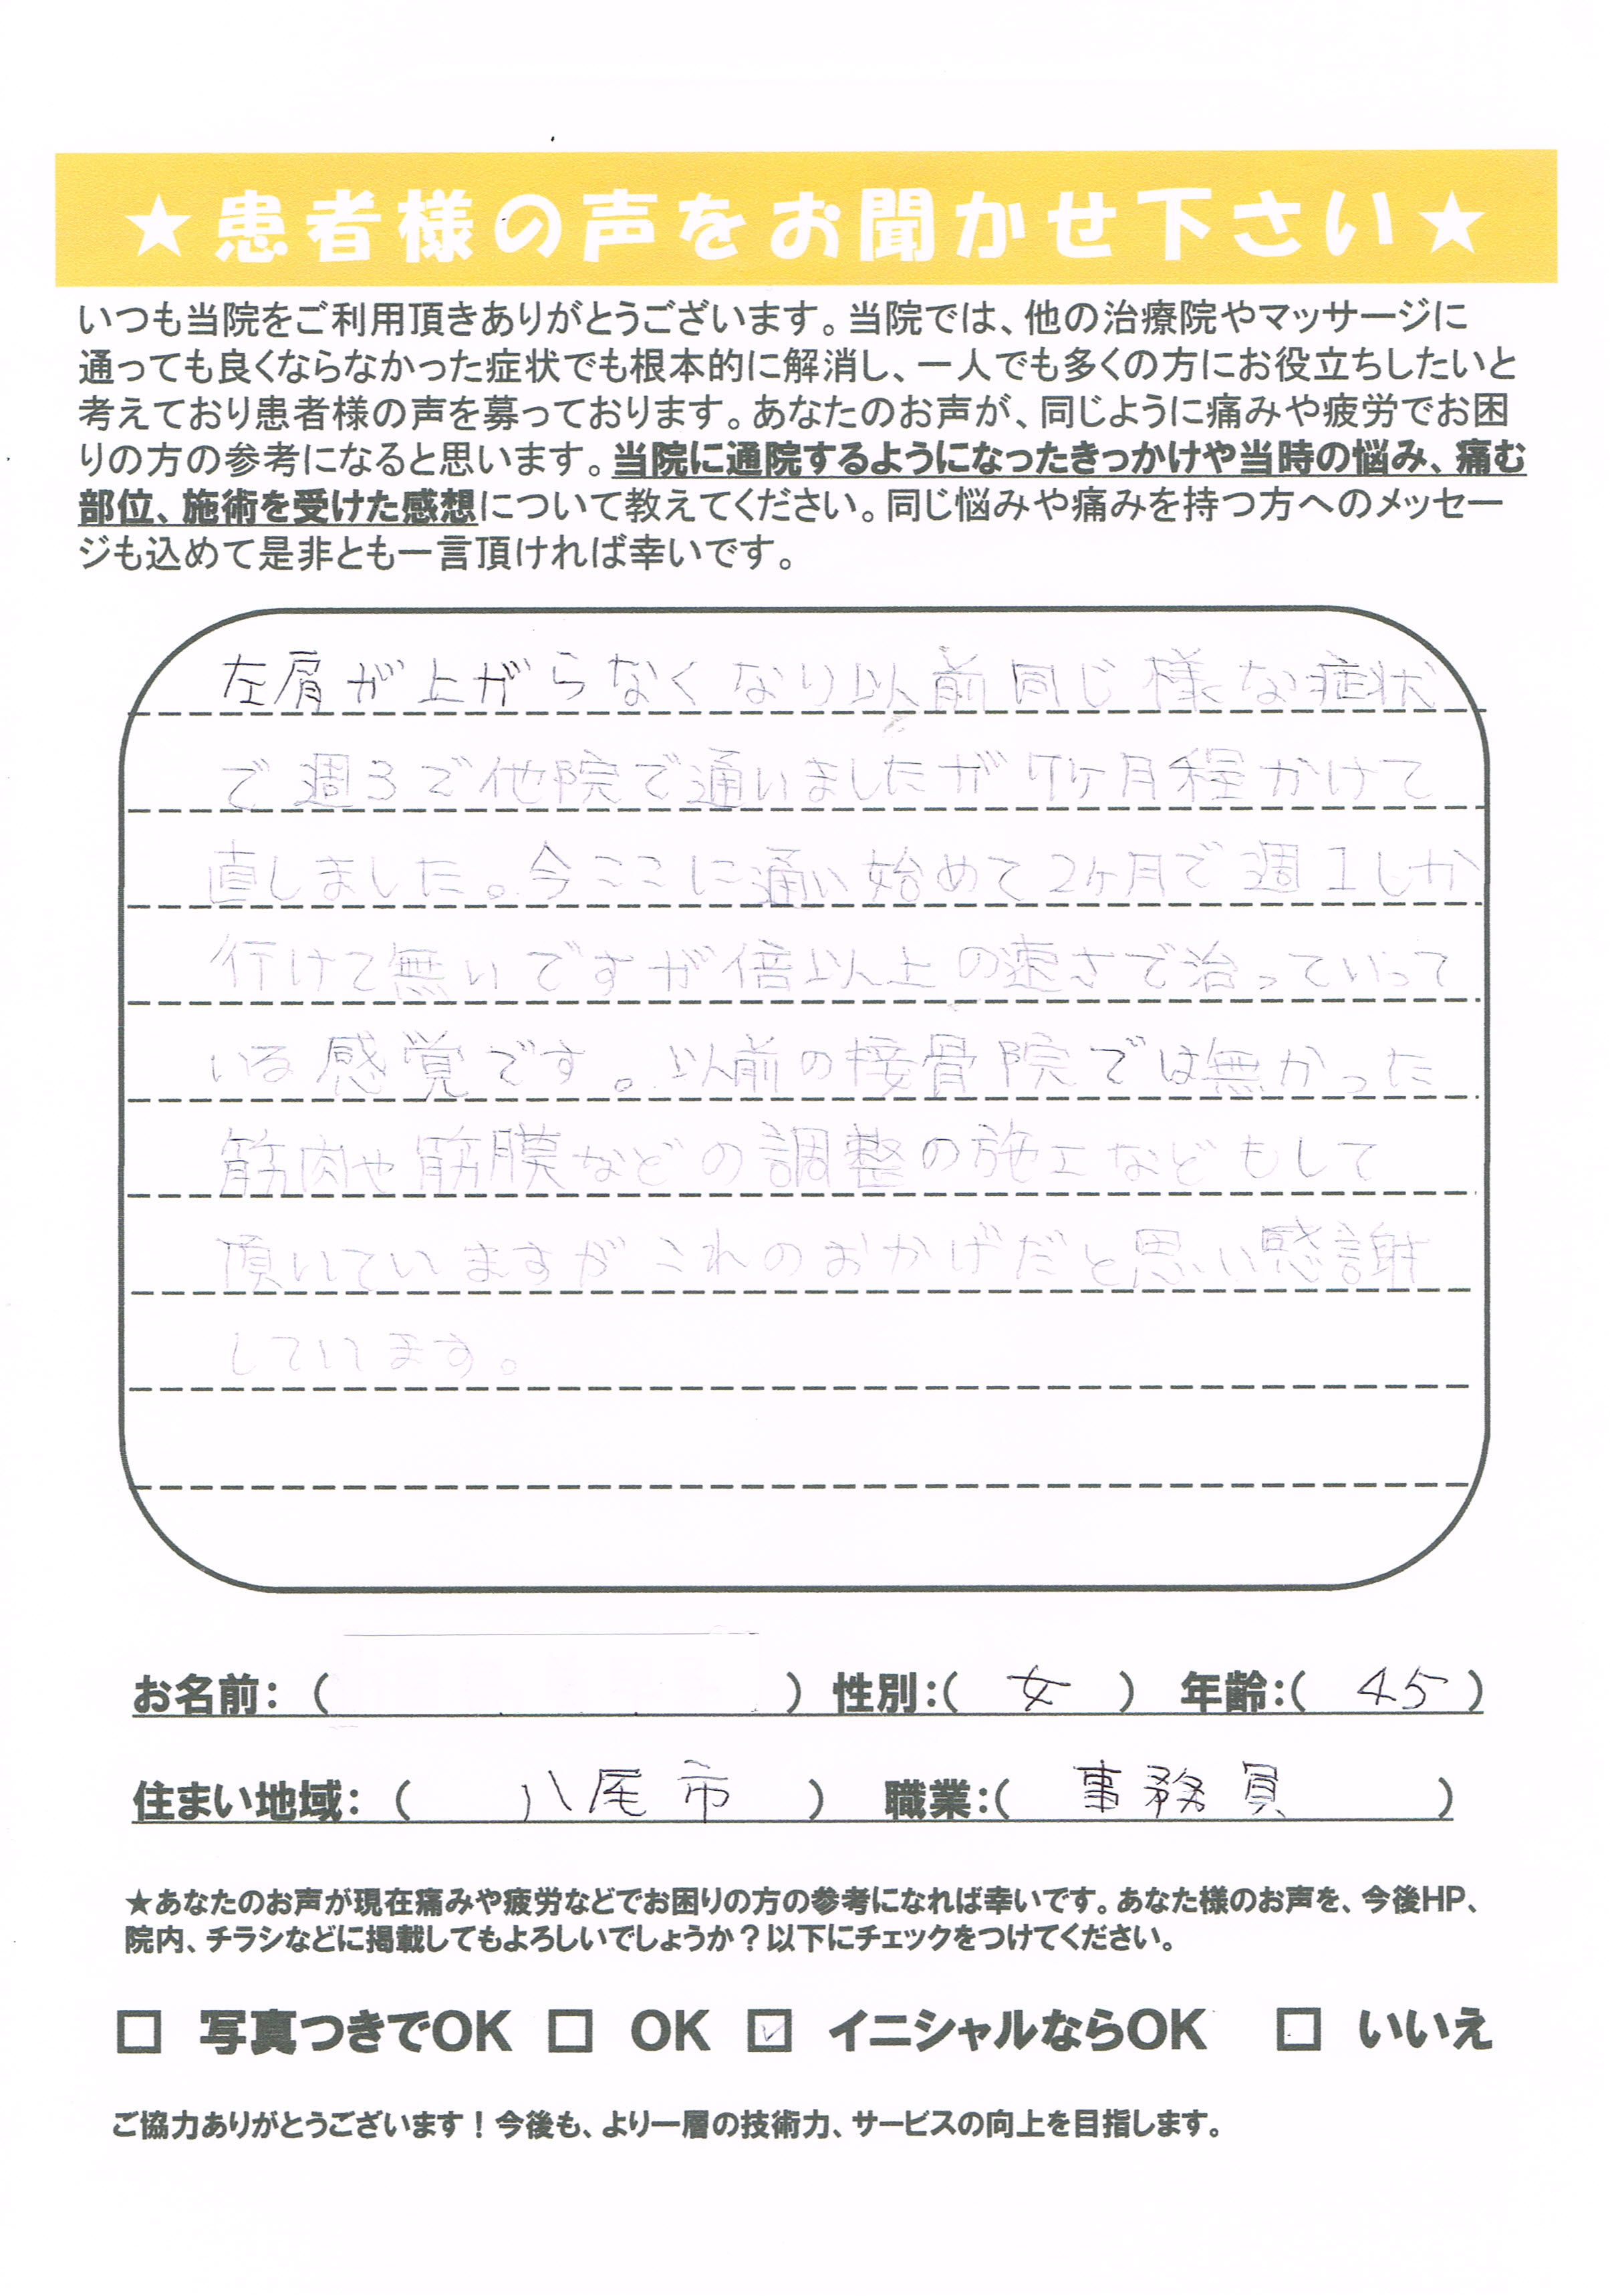 ★患者様の声をお聞かせ下さい★
いつも当院をご利用頂きありがとうございます。当院では、他の治療院やマッサージに
通っても良くならなかった症状でも根本的に解消し、一人でも多くの方にお役立ちしたいと
考えており患者様の声を募っております。あなたのお声が、同じように痛みや疲労でお困
りの方の参考になると思います。当院に通院するようになったきっかけや当時の悩み、痛む
部位、施術を受けた感想について教えてください。同じ悩みや痛みを持つ方へのメッセー
ジも込めて是非とも一言頂ければ幸いです。
左肩が上がらなくなり以前同じ様な症状
で週3で他院で通いましたが7ヶ月程かけて
直しました。今ここに通い始めて2ヶ月で週1しか
行けて無いですが倍以上の速さで治っていって
いる感覚です。以前の接骨院では無かった
筋肉や筋膜などの調整の施工などもして
頂いていますがこれのおかげだと思い感謝
しています。
お名前：（　　　）性別：（女）年齢：（45）
住まい地域：（八尾市）職業：（事務員）
★あなたのお声が現在痛みや疲労などでお困りの方の参考になれば幸いです。あなた様のお声を、今後HP、
院内、チラシなどに掲載してもよろしいでしょうか？以下にチェックをつけてください。
□ 写真つきでOK □ OK ☑ イニシャルならOK □ いいえ
ご協力ありがとうございます！今後も、より一層の技術力、サービスの向上を目指します。